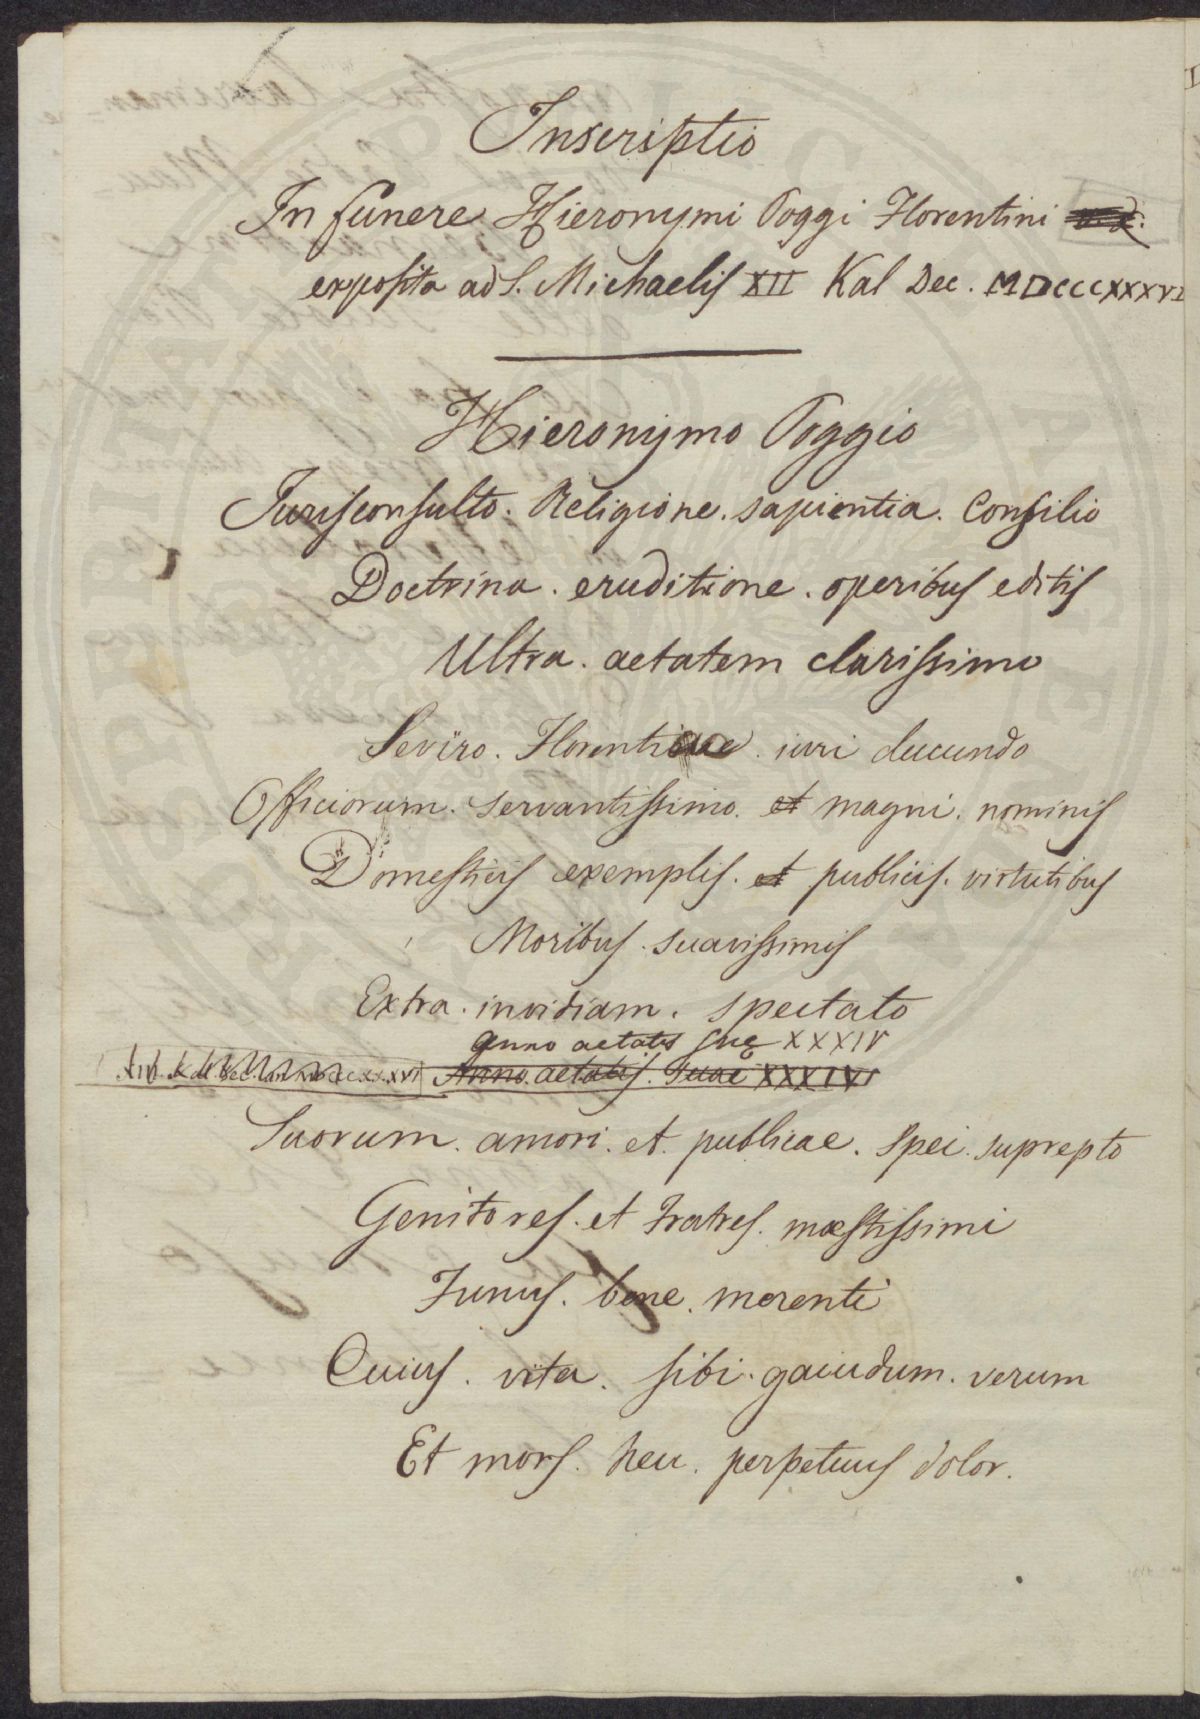 Inscriptio
In funere Hieronymi Poggi Florentini
exposita ad S. Michaelis XII Kal Dec. MDCCCXXXVI
Hieronymo Poggio
Jurisconsulto. Religione. sapientia. Consilio
Doctrina. eruditione. operibus editis
Ultra. aetatem clarissimo
Seviro. Florentiae iuri ducundo
Officiorum. servantissimo. et magni. nominis
Domesticis exemplis. et publicis. virtutibus
Moribus. suavissimis
Extra. invidiam. spectato
anno aetatis suę XXXIV
XIV. Kal. Dec. an. MDCCCXXXVI Anno. aetatis. Suae XXXIV
Suorum. amori. et. publicae. spei. suprepto
Genitores. et Fratres. mæstissimi
Funus. bene. merenti
Cuius. vita. sibi. gaiudum. verum
Et mors. heu. perpetuus dolor.